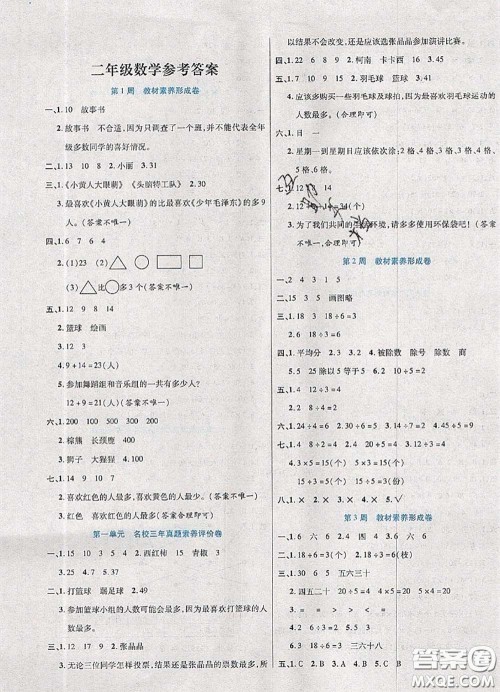 二年级数学参考答案
第1周 教材素养形成卷
一、1.10 故事书
2.故事书 不合适,因为只调查了一个班,并不能代表全年
级多数同学的喜好情况。
二、1.13 10 8 2.小丽 3.31
三、1.《小黄人大眼萌》 《头脑特工队》
2.最喜欢《小黄人大眼萌》的比《少年毛泽东》的多9
人。(答案不唯一)
四、1.6 7 6 4
2.(1)
(2) 比 多3个(答案不唯一)
五、1.9 14
2.篮球 绘画
3.
4.9+14=23(人)
5.参加舞蹈组和音乐组的一共有多少人?
12+9=21(人)(答案不唯一)
六、1.200 100 500 300
2.棕熊 长颈鹿 400
3.狮子 大猩猩 300
七、1.14 9 10 7
2.喜欢红色的人最多,喜欢紫色的人最少。
3.红色 喜欢红色的人最多。(答案不唯一)
第一单元 名校三年真题素养评价卷
一、1.15 12 4 5 2.西红柿 青椒 3
3.25 4.7
二、1.打篮球 踢足球 2.7
3.参加篮球小组的人数可能会最多,因为喜欢打篮球的
人最多。
三、1.12 11 17 2.张晶晶
3.无论三位同学怎样投票,结果还是张晶晶的票数最多,所
以结果不会改变,还是应该选张晶晶参加演讲比赛。
四、1.22 6 8 4 2.柯南 卡卡西 16 40
五、1.25 15 9 3 2.羽毛球 篮球 4
3.应该多购买一些羽毛球及球拍,因为最喜欢羽毛球运动的
人数最多。(合理即可)
六、1.日 一
2.星期一到星期日应该依次涂:2格,3格,4格,3格,5格,
5格,6格。
七、1.12 14
3.为了我们共同的生 环境,请多多使用环保袋吧!(答
案不唯一,合理即可)
第2周 教材素养形成卷
一、1.
二、1.15 3 5 2.画图略
三、1.18 3 18÷6=3 2.18 6 18÷3=6
四、1.平均分 2.3 3 2.被除数 除号 除数 商
3.25除以5等于5 25÷5=5
五、1.4 12÷3=4 2.3 12÷4=3
3.2 12÷6=2 4.6 12÷2=6
六、1.24÷4=6 2.30÷6=5 3.16÷2=8
4.20÷5=4 5.32÷4=8
七、1.12÷4=3 2.4 20÷5=4 5 20÷4=5
3.3×5=15(个) 15÷3=5(个)
八、1.× 2.× 3.× 4.× 5.✓
第3周 教材素养形成卷
一、1.四 六 六 四 六 六
2.3 18÷6=3 五六三十
二、1.四五二十 4 5 2.四六二十四 4 6
3.三四十二 3 4 4.三六十八 3 6